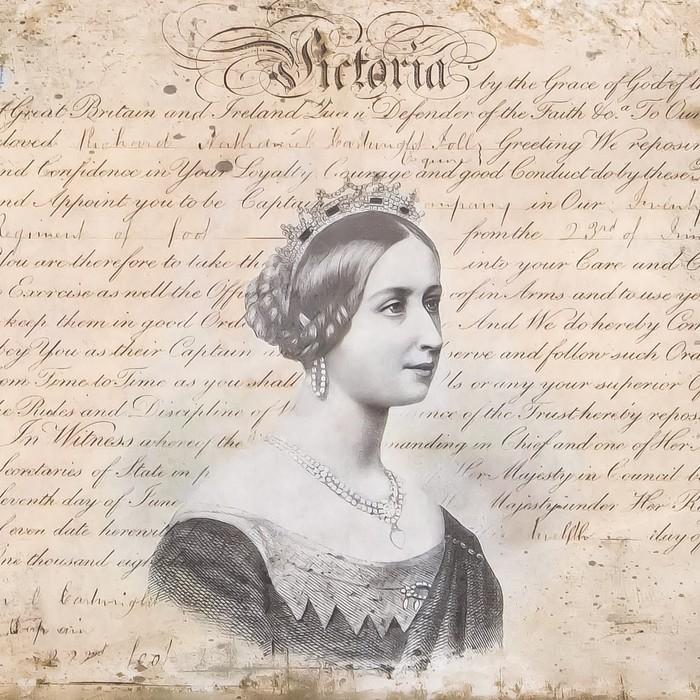 Victoria by the Grace of God of t
f Great Britain and Ireland Queen Defender of the Faith &c.a To Our
loved Richard Nathaniel Cartwright Greeting We reposin
Esquire
nd Confidence in Your Loyalty Courage and good Conduct do by these
nd Appoint you to be Capta ompany in Our
Regiment of foot from the 23rd of
You are therefore to take th into your Care and C
o Exercise as well the Off oof in Arms and to use y
keep them in good Ord And We do hereby Con
bey You as their Captain erve and follow such Ord
om Time to Time as you shall ls or any your superior
he Rules and Discipline of ance of the Trust hereby repos
In Witness whereof the manding in Chief and one of Her
Secretaries of State in p Her Majesty in Council
eventh day of June Majesty under Her
f even date herewi day o
One thousand eigh
Cartwright
foot